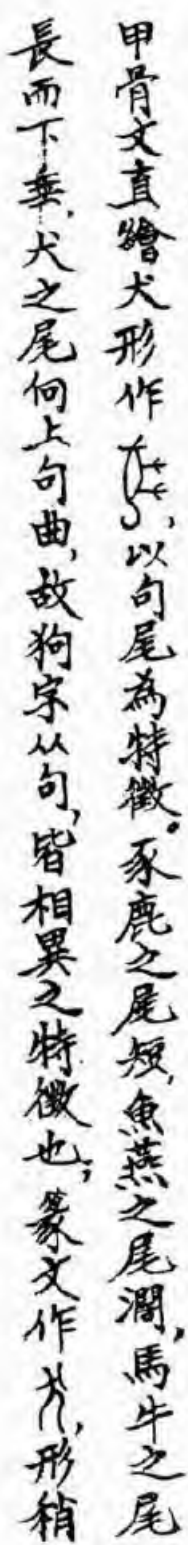 甲骨文直繪犬形作，以句尾為特徵。豕鹿之尾短，魚燕之尾濶，馬牛之尾
長而下垂，犬之尾向上句曲，故狗字从句，皆相異之特徵也；篆文作，形稍